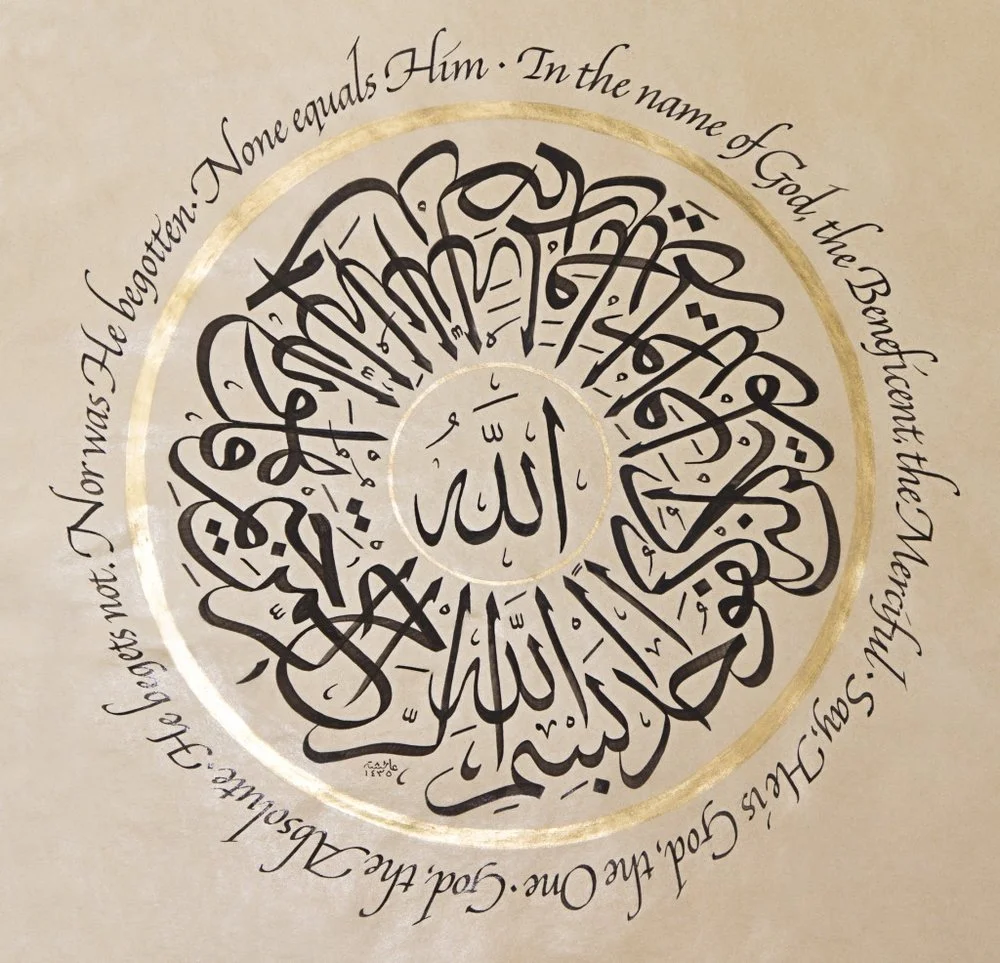 In the name of God, the Beneficent, the Merciful · Say, He is God, the One · God, the Absolute. He begets not. Nor was He begotten. None equals Him ·
بسم الله الرحمن الرحيم قل هو الله أحد الله الصمد لم يلد ولم يولد ولم يكن له كفوا أحد
الله
عائشة
١٤٣٥